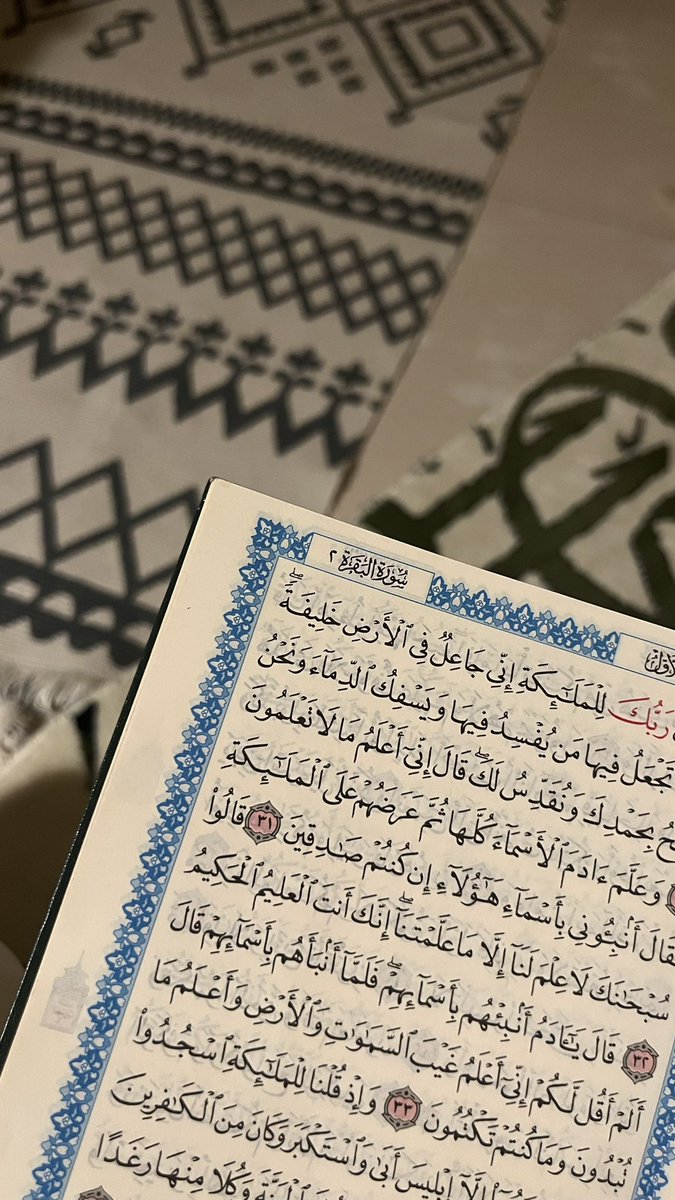 سُورَةُ البَقَرَةِ ٢
رَبُّكَ لِلْمَلَٰٓئِكَةِ إِنِّي جَاعِلٌ فِي ٱلْأَرْضِ خَلِيفَةًۖ
تَجْعَلُ فِيهَا مَن يُفْسِدُ فِيهَا وَيَسْفِكُ ٱلدِّمَآءَ وَنَحْنُ
بِحَمْدِكَ وَنُقَدِّسُ لَكَۖ قَالَ إِنِّيٓ أَعْلَمُ مَا لَا تَعْلَمُونَ
وَعَلَّمَ ءَادَمَ ٱلْأَسْمَآءَ كُلَّهَا ثُمَّ عَرَضَهُمْ عَلَى ٱلْمَلَٰٓئِكَةِ
فَقَالَ أَنۢبِـُٔونِي بِأَسْمَآءِ هَٰٓؤُلَآءِ إِن كُنتُمْ صَٰدِقِينَ ٣١ قَالُوا۟
سُبْحَٰنَكَ لَا عِلْمَ لَنَآ إِلَّا مَا عَلَّمْتَنَآۖ إِنَّكَ أَنتَ ٱلْعَلِيمُ ٱلْحَكِيمُ
٣٢ قَالَ يَٰٓـَٔادَمُ أَنۢبِئْهُم بِأَسْمَآئِهِمْۖ فَلَمَّآ أَنۢبَأَهُم بِأَسْمَآئِهِمْ قَالَ
أَلَمْ أَقُل لَّكُمْ إِنِّيٓ أَعْلَمُ غَيْبَ ٱلسَّمَٰوَٰتِ وَٱلْأَرْضِ وَأَعْلَمُ مَا
تُبْدُونَ وَمَا كُنتُمْ تَكْتُمُونَ ٣٣ وَإِذْ قُلْنَا لِلْمَلَٰٓئِكَةِ ٱسْجُدُوا۟
إِلَّآ إِبْلِيسَ أَبَىٰ وَٱسْتَكْبَرَ وَكَانَ مِنَ ٱلْكَٰفِرِينَ
وَكُلَا مِنْهَا رَغَدًا